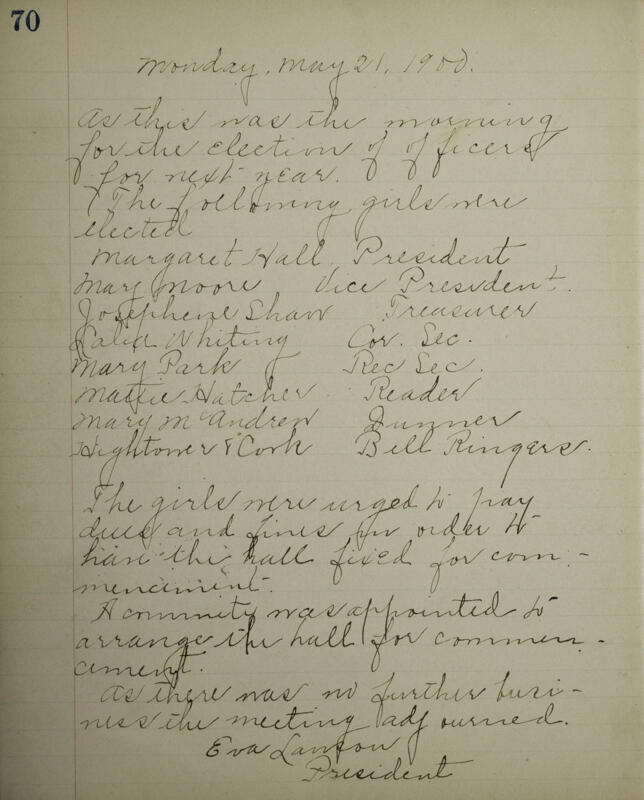 70
Monday, May 21, 1900.
As this was the morning
for the election of officers
for next year.
The following girls were
elected
Margaret Hall President
Mary Moore Vice President.
Josephene Shaw Treasurer
Whiting Cor. Sec.
Mary Park Rec Sec.
Mattie Hatcher Reader
Mary McAndrew Dunner
Hightower & Cork Bell Ringers.
The girls were urged to pay
dues and fines in order to
have the hall fixed for com-
mencement.
A committy was appointed to
arrange the hall for commen-
cement.
As there was no further busi-
ness the meeting adjourned.
Eva Lawson
President